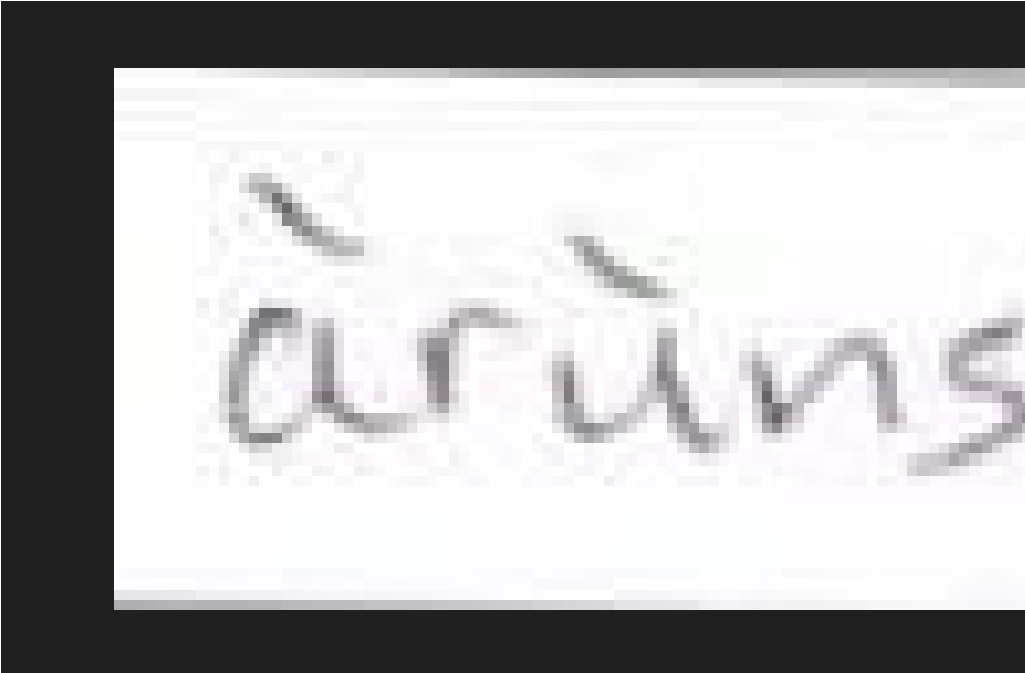 àrùns